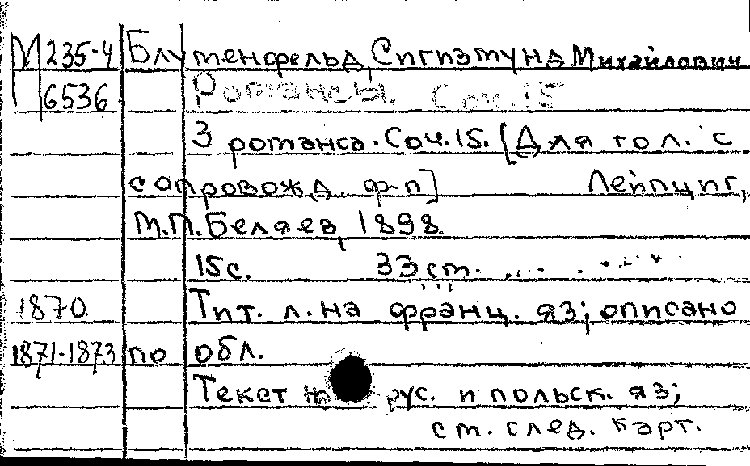 М 235-4 Блуменфельд, Сигизмунд Михайлович
6536 Романсы. Соч. 15
3 романса. Соч. 15. [Для гол. с
сопровожд. ф-п] Лейпциг,
М.П. Беляев, 1898.
15 с. 33 см.
1870 Тит. л. на франц. яз; описано
1871-1873 по обл.
Текст на рус. и польск. яз;
см. след. карт.